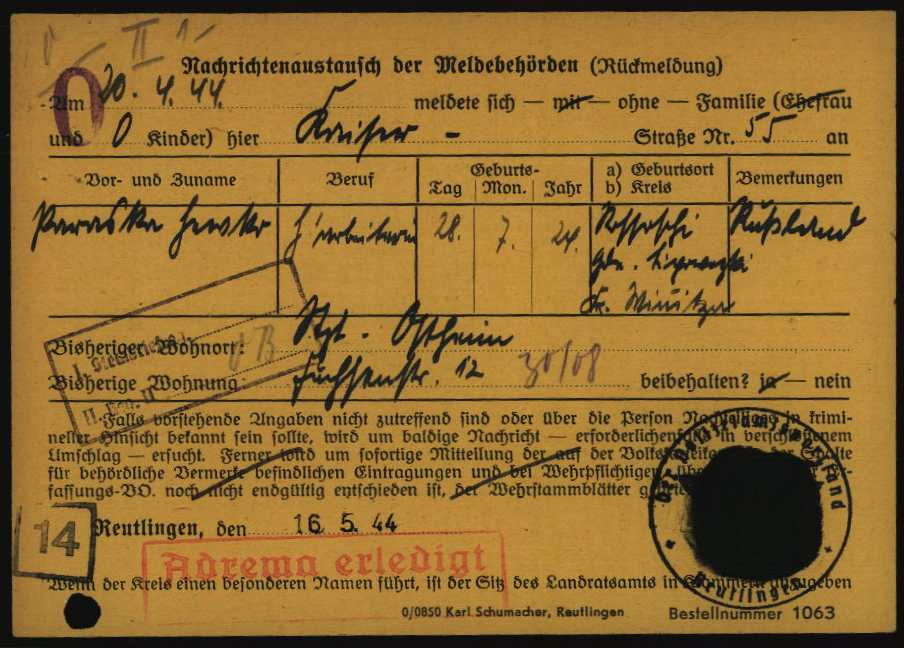 II
Nachrichtenaustausch der Meldebehörden (Rückmeldung)
0
Am 20. 4. 44. meldete sich — mit — ohne — Familie (Ehefrau
und 0 Kinder) hier Kaiser - Straße Nr. 55 an
Vor- und Zuname Beruf Geburts- Tag Mon. Jahr a) Geburtsort b) Kreis Bemerkungen
Paraska H'arbeiterin 28. 7. 24. Rußland
Gde.
Kr. Winnitza
Bisheriger Wohnort: Stgt - Ostheim
Bisherige Wohnung: Fuchsenstr. 12 30/08 beibehalten? ja — nein
Falls vorstehende Angaben nicht zutreffend sind oder über die Person Nachteiliges in krimi-
neller Hinsicht bekannt sein sollte, wird um baldige Nachricht — erforderlichenfalls in verschlossenem
Umschlag — ersucht. Ferner wird um sofortige Mitteilung der auf der der Spalte
für behördliche Vermerke befindlichen Eintragungen und bei Wehrpflichtigen,
fassungs-VO. noch nicht endgültig entschieden ist, der Wehrstammblätter
14
Reutlingen, den 16. 5. 44
Adrema erledigt
Wenn der Kreis einen besonderen Namen führt, ist der Sitz des Landratsamts in Klammern anzugeben
Reutlingen
0/0850 Karl Schumacher, Reutlingen Bestellnummer 1063